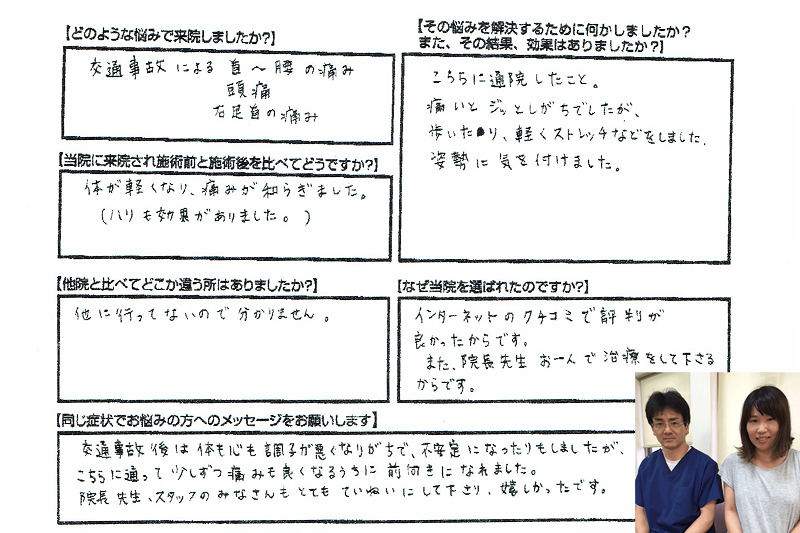 【どのような悩みで来院しましたか?】
交通事故による首～腰の痛み
頭痛
右足首の痛み
【その悩みを解決するために何かしましたか?
また、その結果、効果はありましたか?】
こちらに通院したこと。
痛いとジッとしがちでしたが、
歩いたり、軽くストレッチなどをしました.
姿勢に気を付けました。
【当院に来院され施術前と施術後を比べてどうですか?】
体が軽くなり、痛みが和らぎました。
(ハリも効果がありました。)
【他院と比べてどこか違う所はありましたか?】
他に行ってないので分かりません。
【なぜ当院を選ばれたのですか?】
インターネットのクチコミで評判が
良かったからです。
また、院長先生お一人で治療をして下さる
からです。
【同じ症状でお悩みの方へのメッセージをお願いします】
交通事故後は体も心も調子が悪くなりがちで、不安定になったりもしましたが、
こちらに通って少しずつ痛みも良くなるうちに前向きになれました。
院長先生、スタッフのみなさんもとてもていねいにして下さり、嬉しかったです。